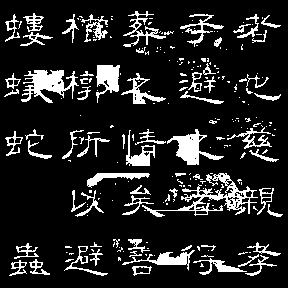 者也慈親孝
子避之者得
葬之情矣善
棺槨所以避
螻蟻蛇蟲